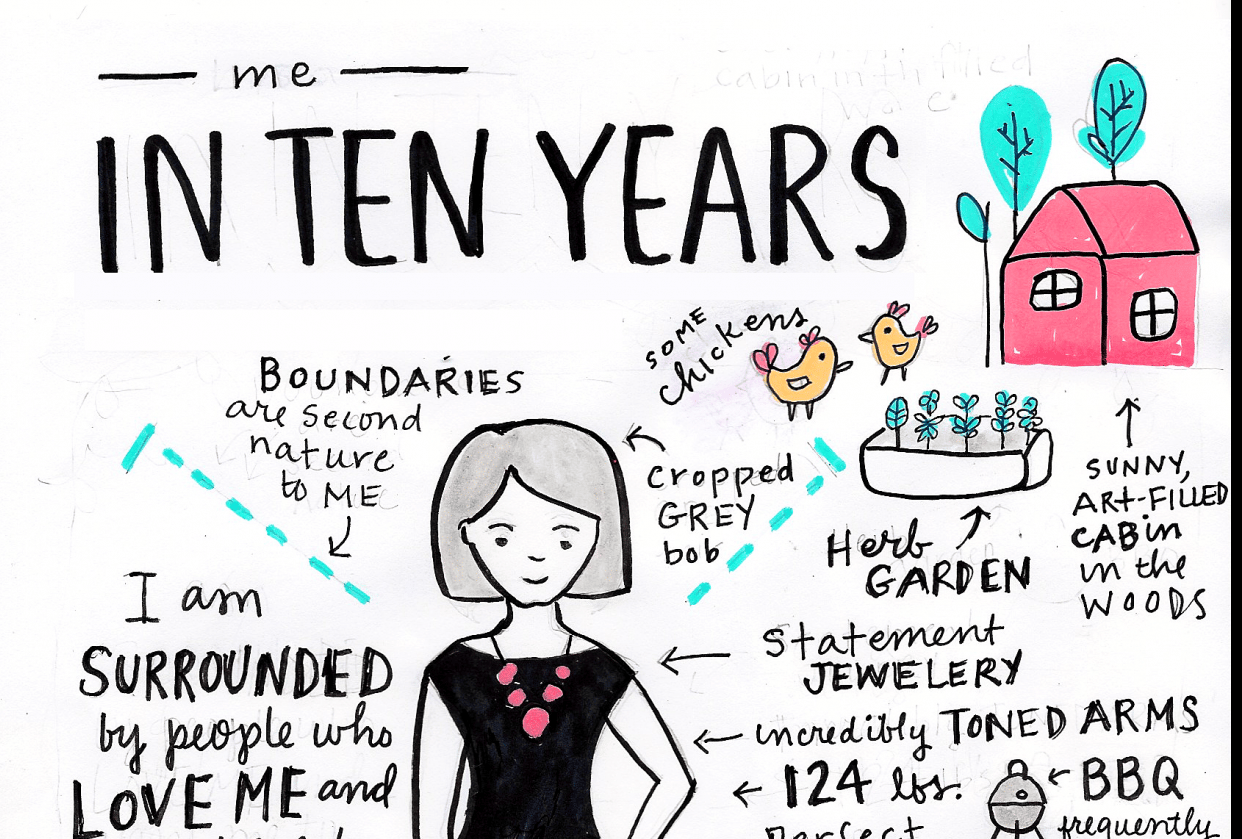 me
IN TEN YEARS
SOME
chickens
BOUNDARIES
are second
nature
to ME
cropped
GREY
bob
Herb
GARDEN
SUNNY,
ART-FILLED
CABin
in the
WOODS
I am
SURROUNDED
by people who
LOVE ME and
Statement
JEWELERY
incredibly TONED ARMS
124 lbs.
Perfect
BBQ
frequently